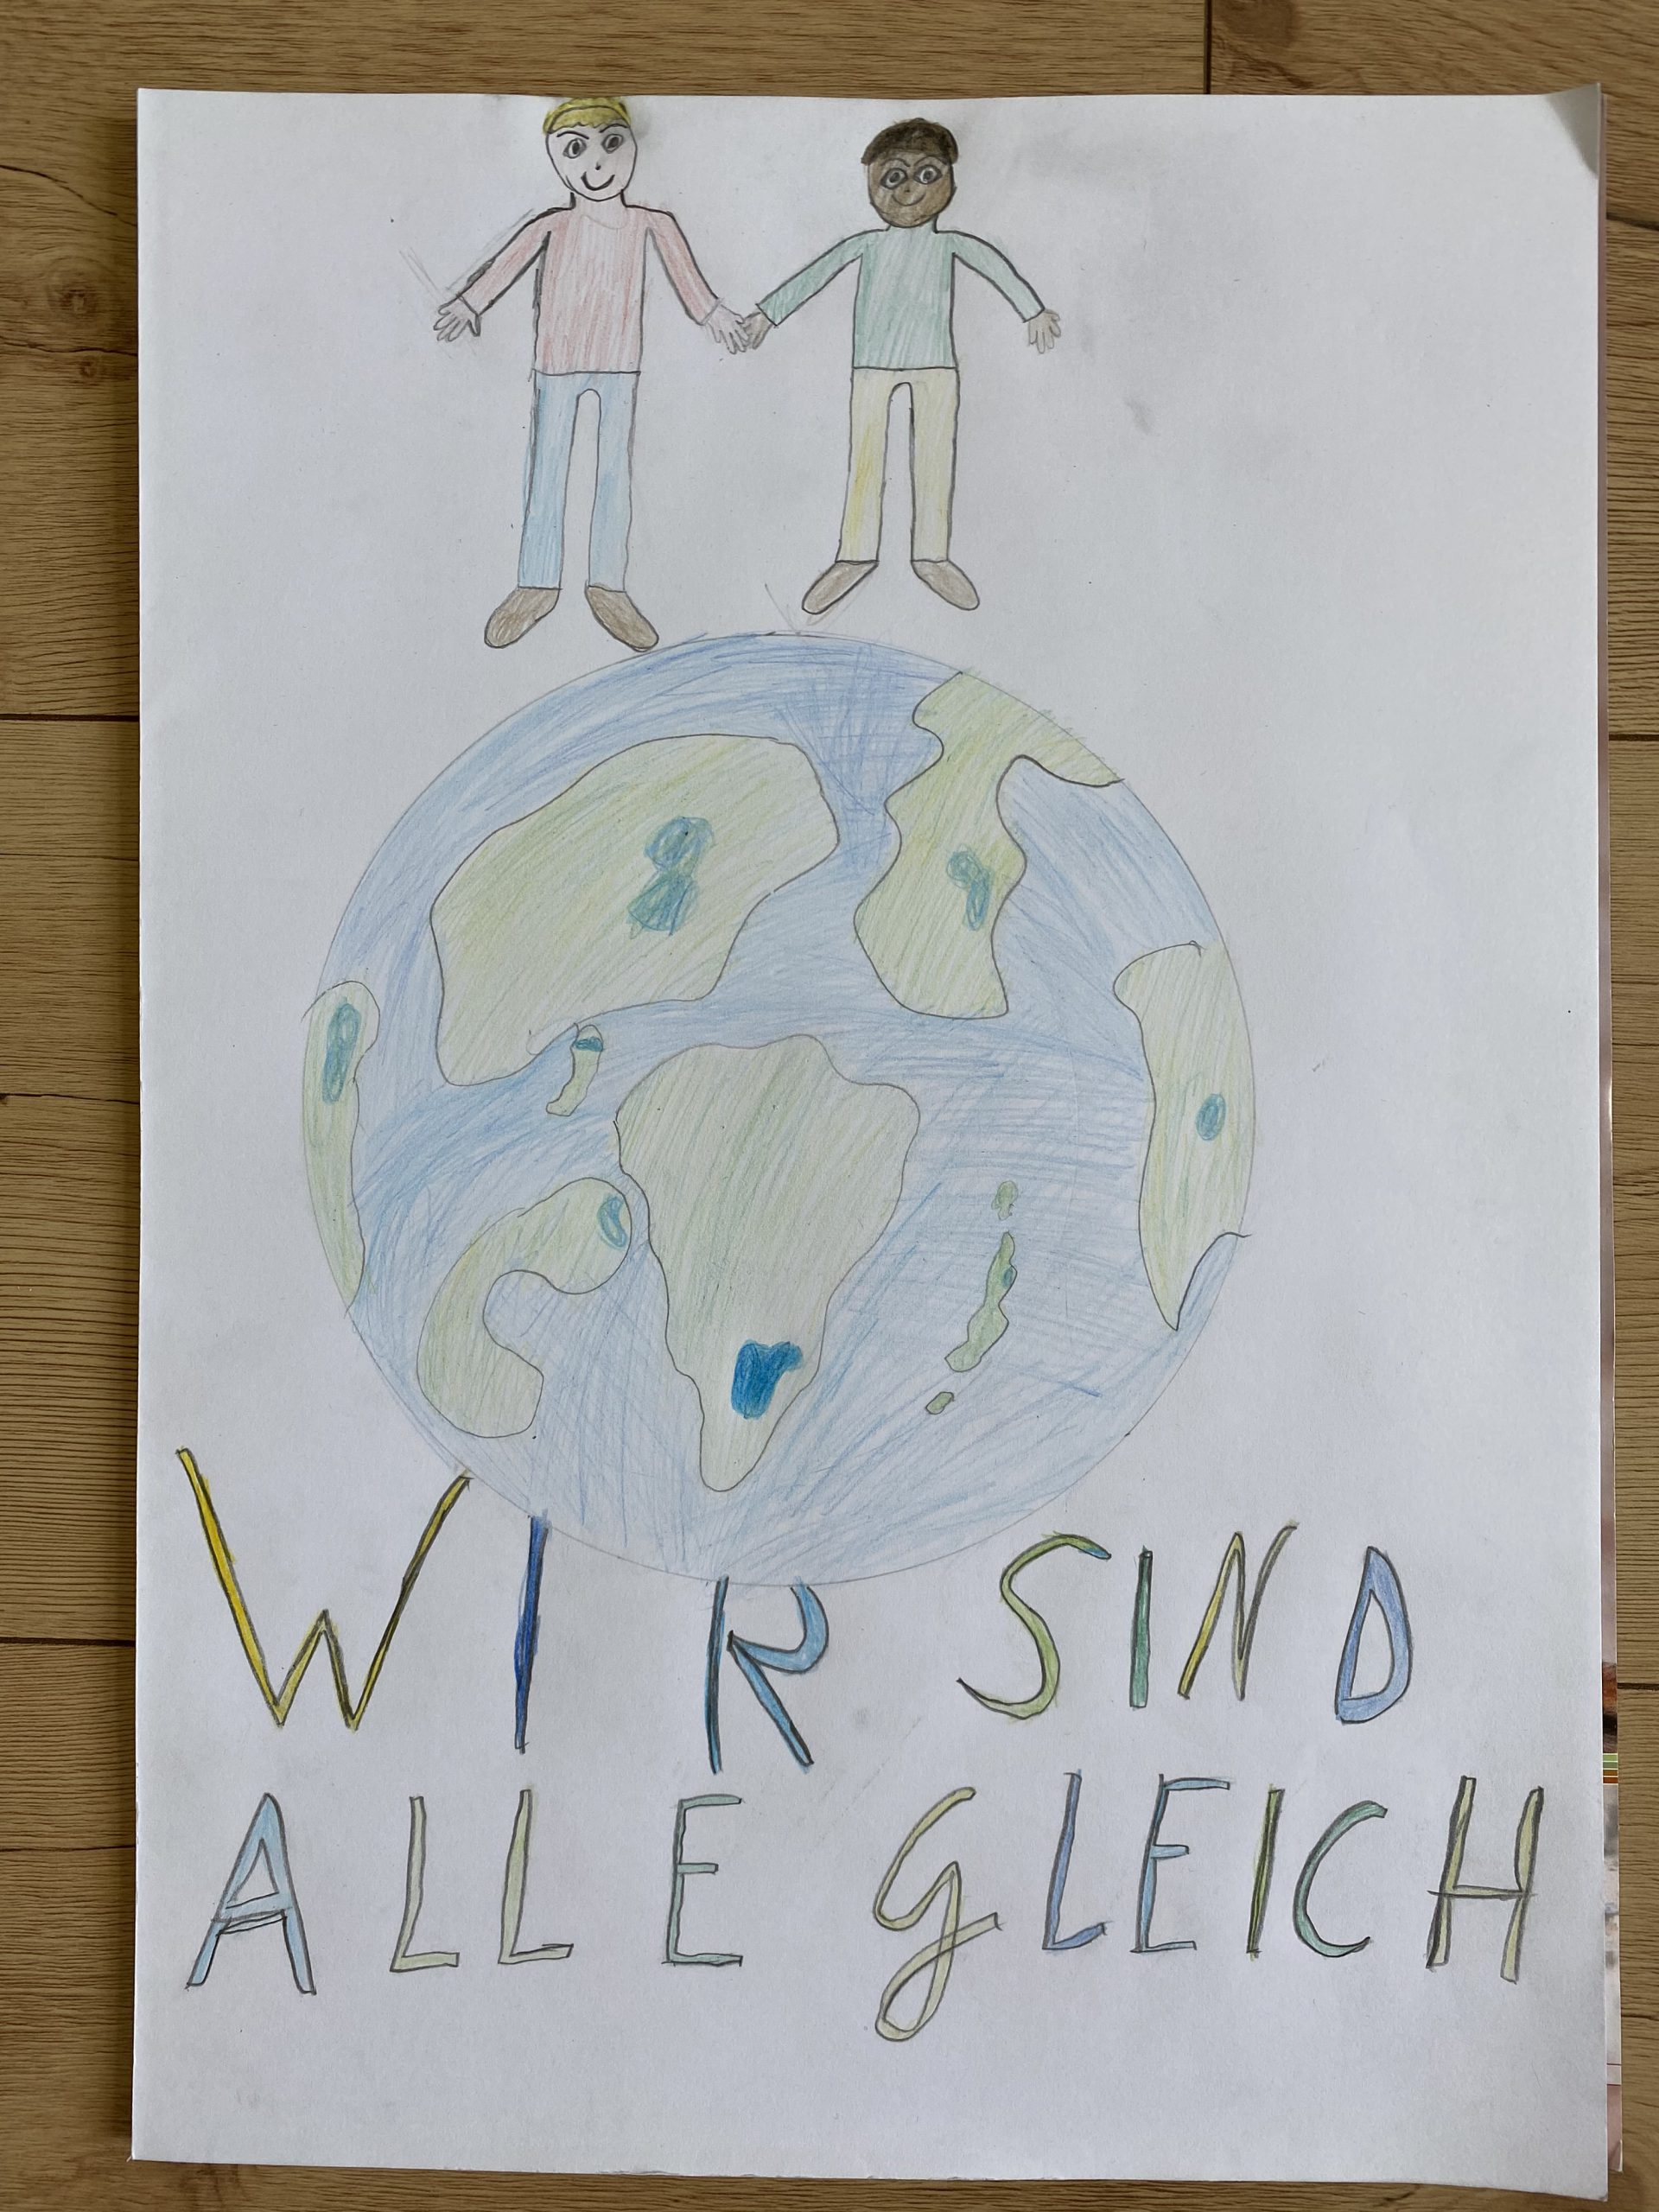 WIR SIND
ALLE gLEICH